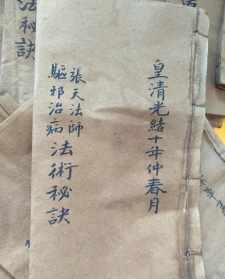 皇清光緒十年仲春月
張天法師
驅邪治病
法術秘訣
法秘訣